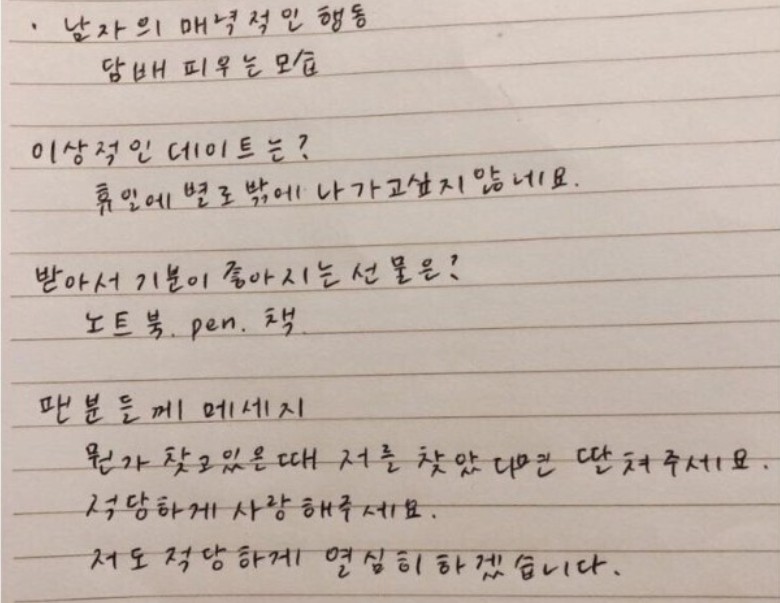 · 남자의 매력적인 행동
담배 피우는 모습
이상적인 데이트는?
휴일에 별로 밖에 나가고싶지 않네요.
받아서 기분이 좋아지는 선물은?
노트북. pen. 책.
팬분들께 메세지
뭔가 찾고있은때 저를 찾았다면 딴쳐주세요.
적당하게 사랑해주세요.
저도 적당하게 열심히하겠습니다.